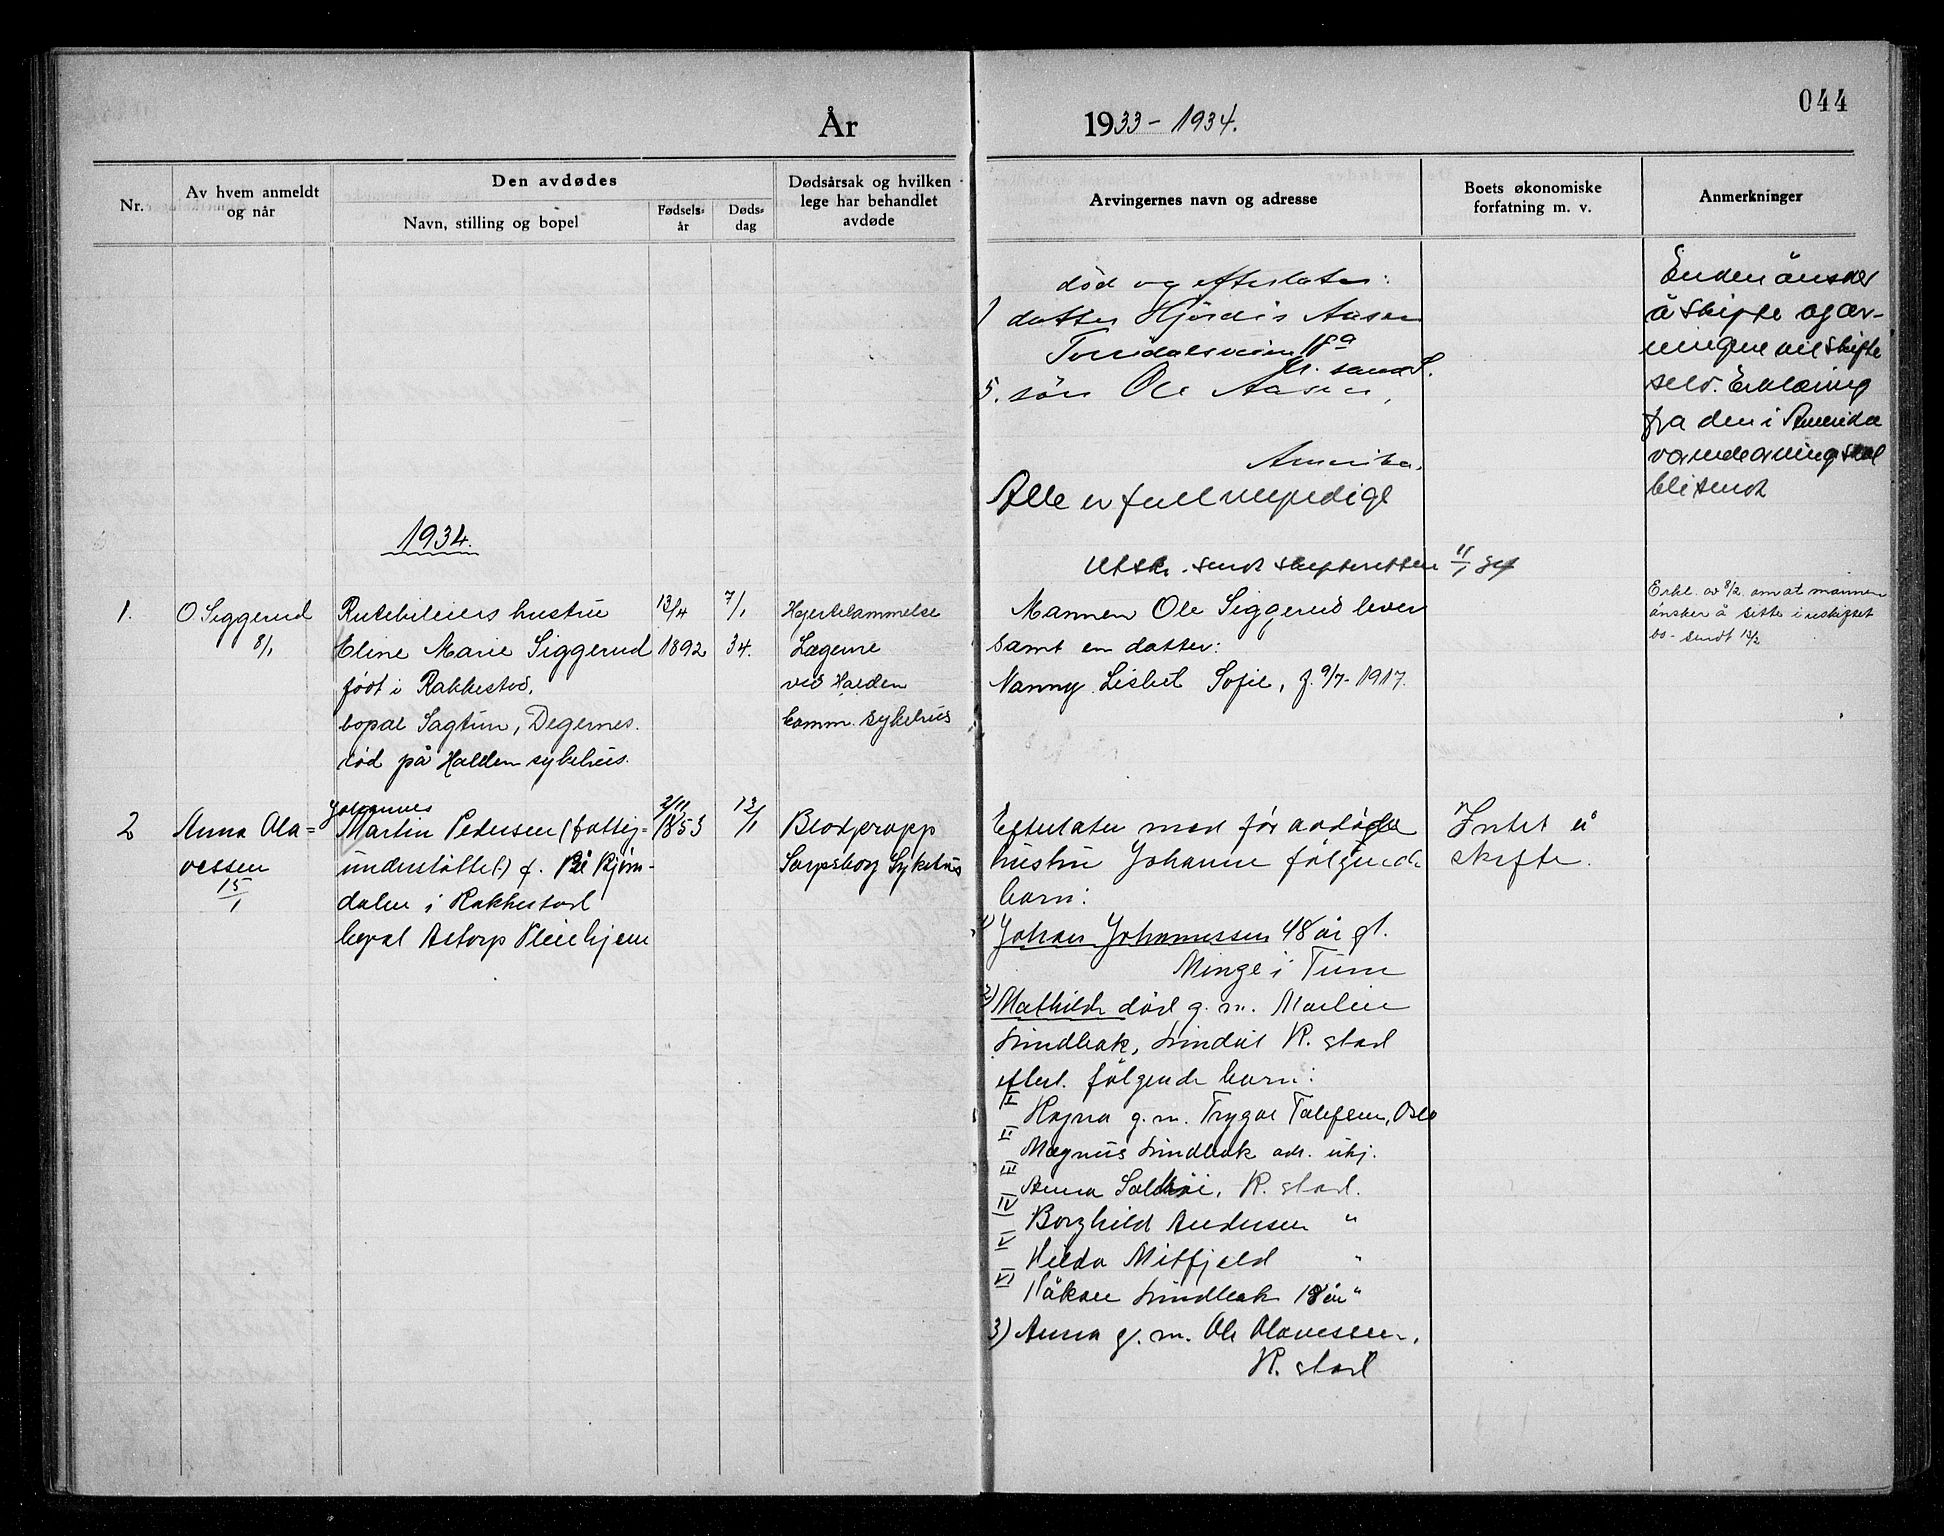 044
År 1933 - 1934.
Nr.
Av hvem anmeldt
og når
Den avdødes
Navn, stilling og bopel
Fødsels-
år
Døds-
dag
Dødsårsak og hvilken
lege har behandlet
avdøde
Arvingernes navn og adresse
Boets økonomiske
forfatning m. v.
Anmerkninger
død og efterlater:
1 datter Hjördis Aasen
18a
Kr. sand S.
5. sön Ole Aasen,
Amerika.
Alle er fullmyndige
Enken önsker
å skifte og ar-
vingene vil skifte
selv. Erklæring
fra den i Amerika
værende arving skal
bli sendt
1934.
Utskr. sendt skifteretten 11/1 34
1.
O Siggerud
8/1
Rutebileiers hustru
Eline Marie Siggerud
født i Rakkestad,
bopæl Sagtun, Degernes.
død på Halden sykehus.
13/4
1892
7/1
34.
Hjertelammelse
Lægerne
ved Halden
komm. sykehus
Mannen Ole Siggerud lever
samt en datter:
Nanny Lisbet Sofie, f. 9/7-1917.
Erkl. av 8/2 om at mannen
önsker å sitte i uskiftet
bo - sendt 13/2
2
Anna Ola=
vessen
15/1
Johannes
Martin Pedersen (fattig=
understøttet) f. på Bjørn-
dalen i Rakkestad
bopæl Åstorp Pleiehjem
2/11
1853
13/1
Blodpropp
Sarpsborg Sykehus
Efterlater med før avdøde
hustru Johanne følgende
barn:
1) Johan Johannessen 48 år gl.
Minge i Tune
2) Mathilde død g. m. Martin
Lindbak, R. stad
efterl. følgende barn:
I Ragna g. m. Trygve Tollefsen, Oslo
II Magnus Lindbak adr. ubj.
III Anna R. stad.
IV Borghild Andersen "
V Hilda Mitfjeld "
VI Håkon Lindbak 18 år "
3) Anna g. m. Ole Olavessen,
R. stad
Intet å
skifte.